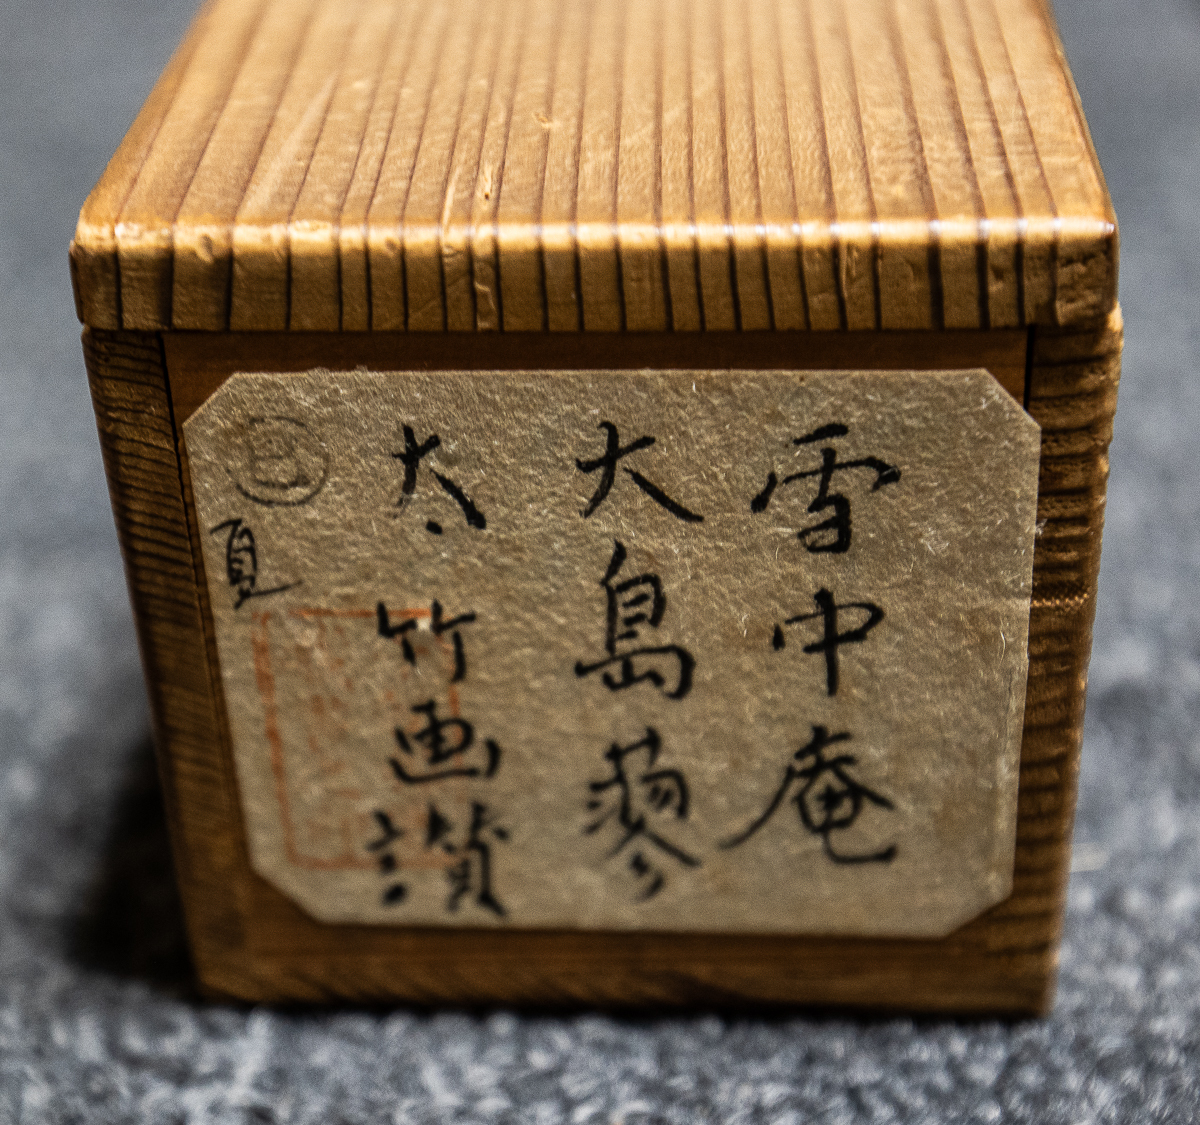 雪中庵
大島蓼
太竹画讃
夏